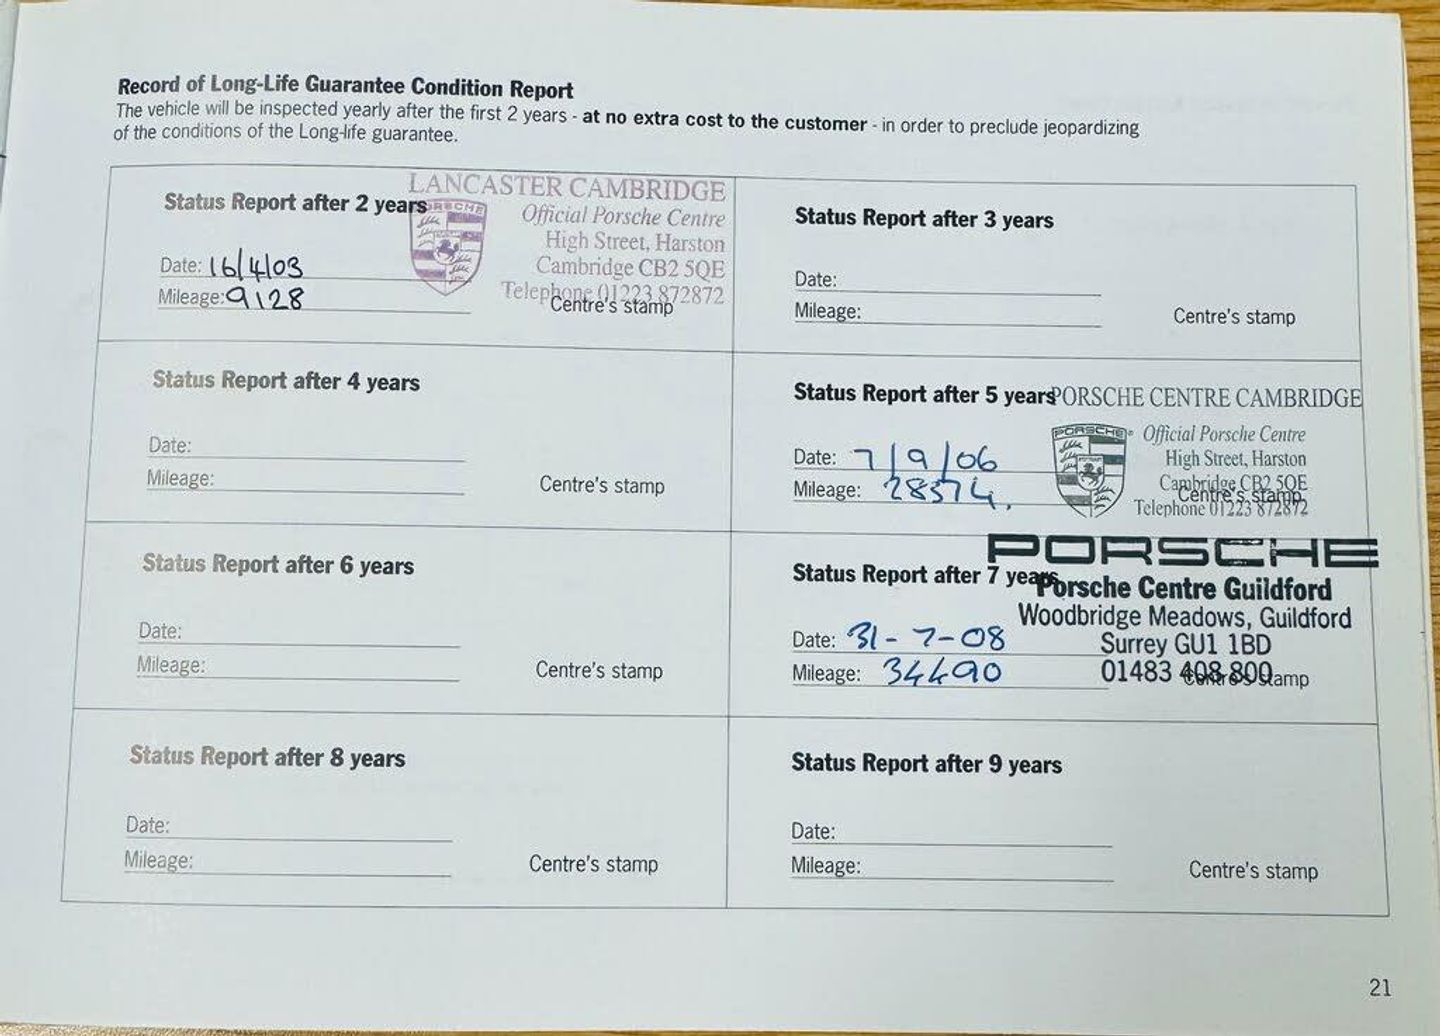 Record of Long-Life Guarantee Condition Report
The vehicle will be inspected yearly after the first 2 years - at no extra cost to the customer - in order to preclude jeopardizing
of the conditions of the Long-life guarantee.
Status Report after 2 years
LANCASTER CAMBRIDGE
PORSCHE
Official Porsche Centre
High Street, Harston
Cambridge CB2 5QE
Telephone 01223 872872
Date: 16/4/03
Mileage: 9128
Centre's stamp
Status Report after 3 years
Date:
Mileage:
Centre's stamp
Status Report after 4 years
Date:
Mileage:
Centre's stamp
Status Report after 5 years
PORSCHE CENTRE CAMBRIDGE
PORSCHE
Official Porsche Centre
High Street, Harston
Cambridge CB2 5QE
Telephone 01223 872872
Date: 7/9/06
Mileage: 28574.
Centre's stamp
Status Report after 6 years
Date:
Mileage:
Centre's stamp
Status Report after 7 years
PORSCHE
Porsche Centre Guildford
Woodbridge Meadows, Guildford
Surrey GU1 1BD
01483 408 800
Date: 31-7-08
Mileage: 34490
Centre's stamp
Status Report after 8 years
Date:
Mileage:
Centre's stamp
Status Report after 9 years
Date:
Mileage:
Centre's stamp
21